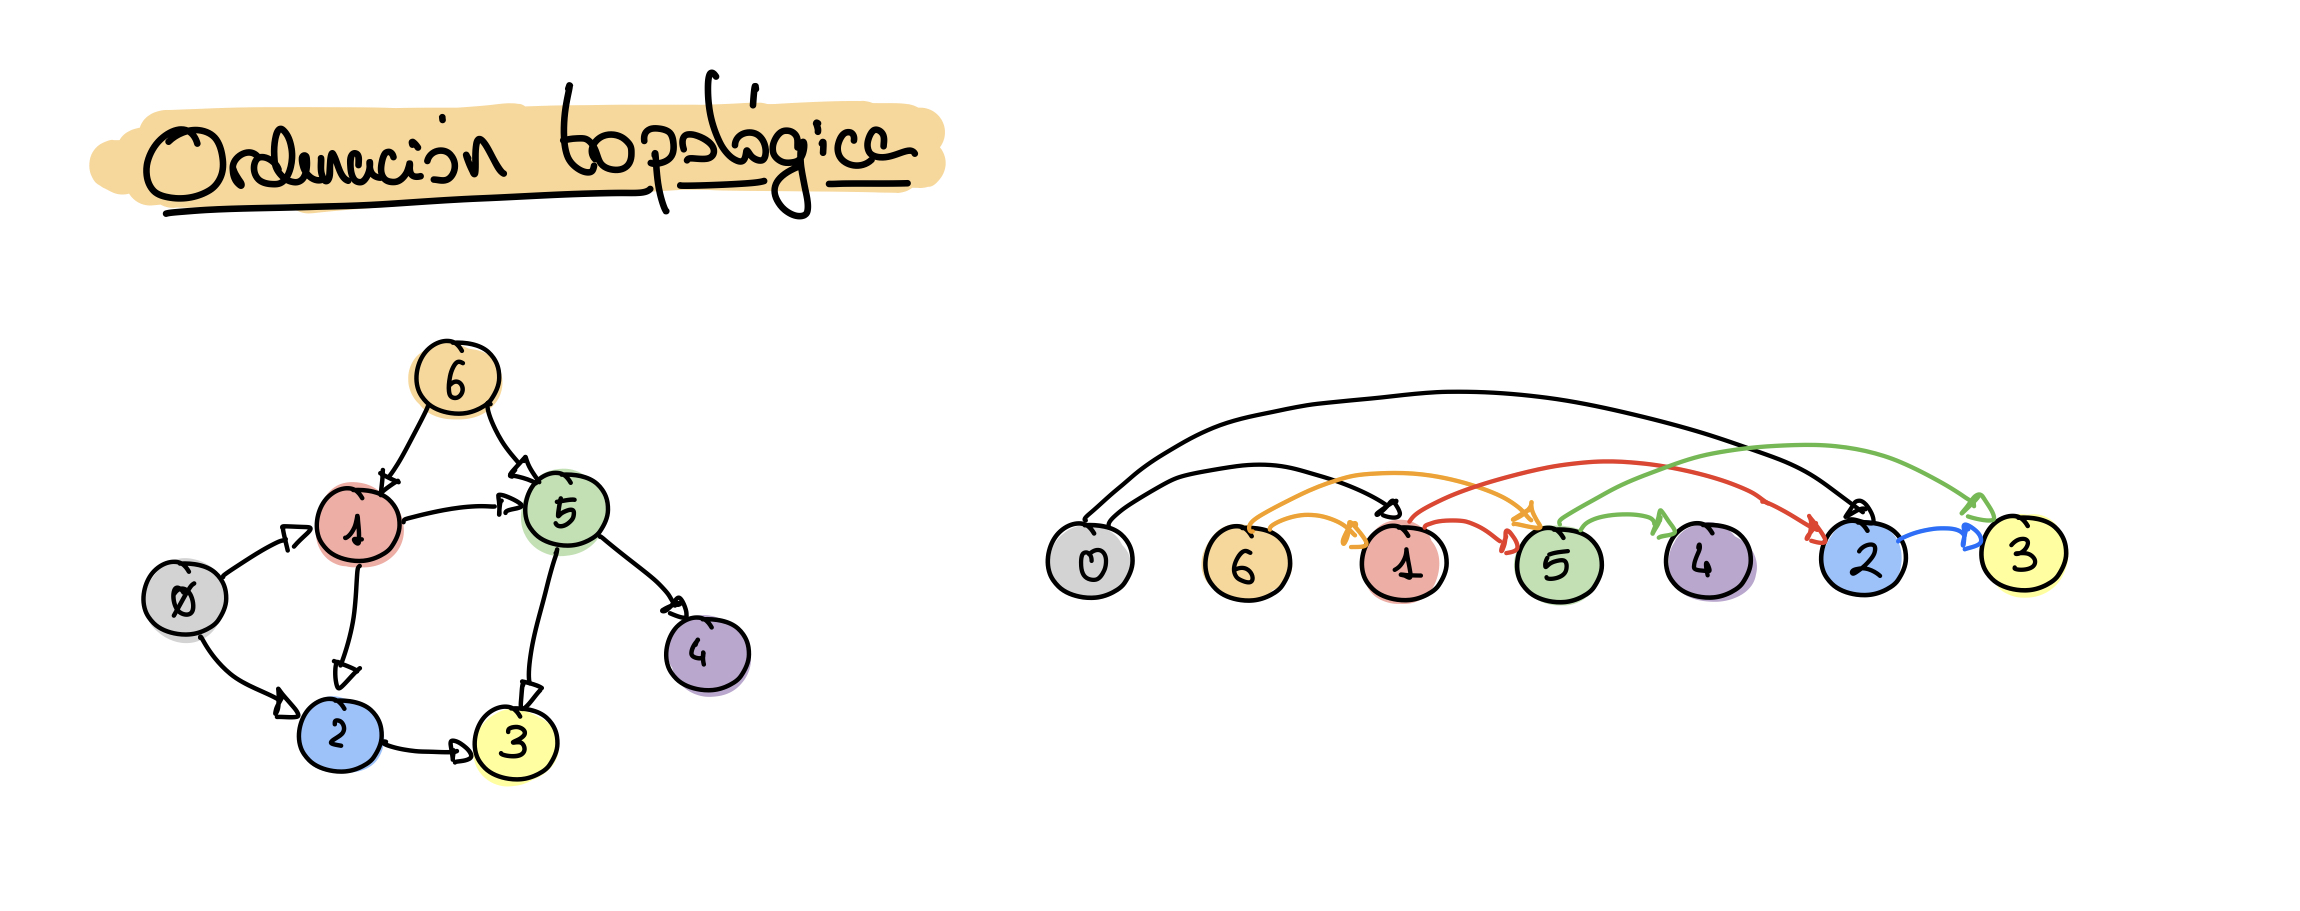 Ordenación topológica
6
1
5
0
4
2
3
0 6 1 5 4 2 3